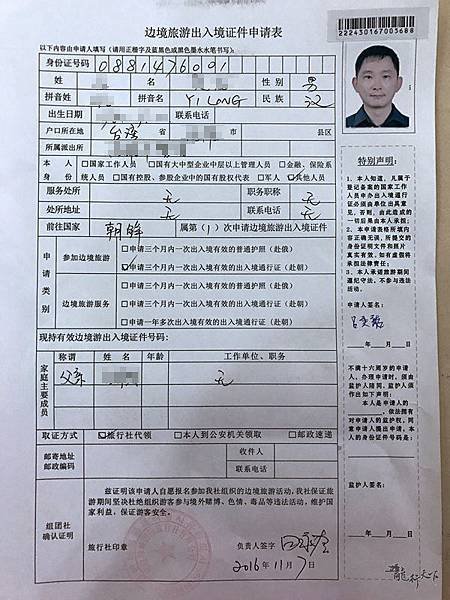 边境旅游出入境证件申请表
以下内容由申请人填写（请用正楷字及蓝黑色或黑色墨水水笔书写）：
222430167003688
身份证号码 0881476091
姓 名 性别 男
拼音姓 拼音名 YI LONG 民族 汉
出生日期 联系电话
户口所在地 台湾 省 市 县区
所属派出所
本人身份 □国家工作人员 □国有大中型企业中层以上管理人员 □金融、保险系
统人员 □国有控股、参股企业中的国有股权代表 □军人 ☑其他人员
服务处所 无 职务职称 无
处所地址 无 联系电话 无
前往国家 朝鲜 属第（1）次申请边境旅游出入境证件
申请类别
参加边境旅游
□申请三个月内一次出入境有效的普通护照（赴俄）
☑申请三个月内一次出入境有效的出入境通行证（赴朝）
边境旅游服务
□申请三个月内一次出入境有效的普通护照（赴俄）
□申请三个月内一次出入境有效的出入境通行证（赴朝）
□申请一年多次出入境有效的出入境通行证（赴朝）
现持有效边境游出入境证件号码：
家庭主要成员
称谓 姓名 年龄 工作单位、职务
父亲 无
取证方式 ☑旅行社代领 □本人到公安机关领取 □邮政速递
邮寄地址 收件人
邮政编码 联系电话
组团社
确认证明
兹证明该申请人自愿报名参加我社组织的边境旅游活动，我社保证旅
游期间坚决杜绝组织游客参与境外赌博、色情、毒品等违法活动，维护国
家利益，保证游客安全。
旅行社印章 负责人签字
2016年11月7日
特别声明：
1、本人知道，凡属于
登记备案的国家工作
人员申办出入境通行
证必须由单位出具意
见，否则，由此造成的
一切后果由本人承担；
2、本申请表格所填内
容正确无误，所提交的
身份证明文件和照片
真实有效，如有虚假将
承担法律责任；
3、本人承诺旅游期间
遵纪守法，不参与违法
活动。
申请人签名：
年 月 日
不满十六周岁的申请
人，办理申请时，须由
监护人陪同，监护人须
作出如下声明：
本人是申请人的
，依法拥有
对申请人的监护权，同
意申请人提出申请。本
人的身份证件号码是：
监护人签名：
年 月 日
龍行天下